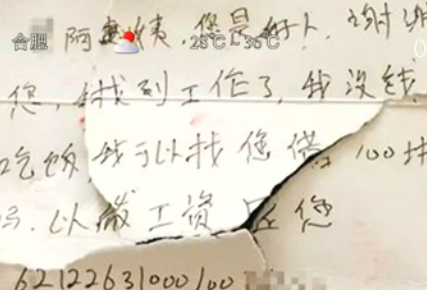 合肥 28℃~36℃
阿姨,您是好人,谢谢
您,我找到工作了,我没钱
吃饭我可以找您借100块
吗.以发工资还您
62122631000100